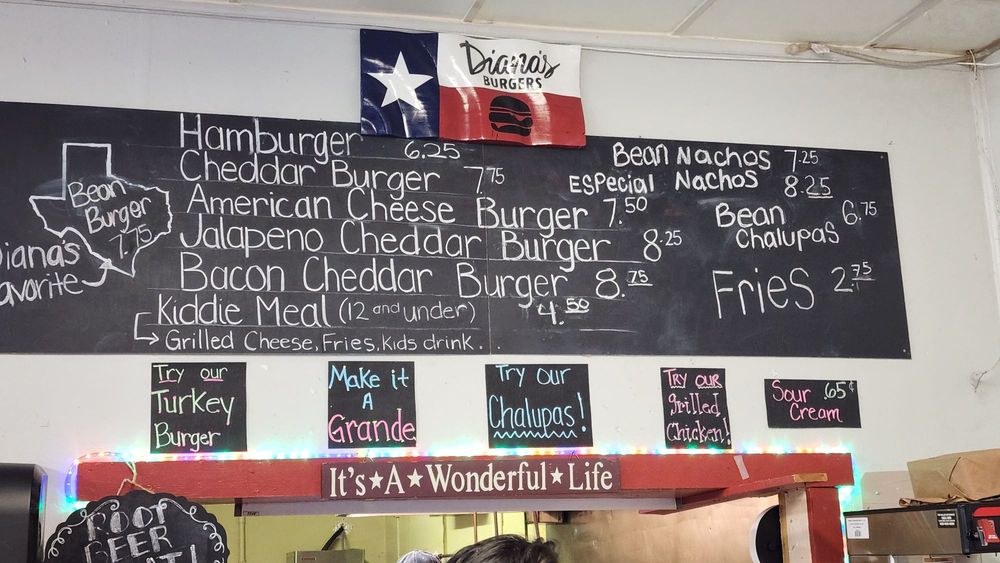 Diana's
BURGERS
Hamburger 6.25
Cheddar Burger 7.75
American Cheese Burger 7.50
Jalapeno Cheddar Burger 8.25
Bacon Cheddar Burger 8.75
Kiddie Meal (12 and under) 4.50
Grilled Cheese, Fries, Kids drink...
Bean
Burger
7.75
Diana's
Favorite
Bean Nachos 7.25
ESPecial Nachos 8.25
Bean 6.75
Chalupas
Fries 2.75
Try our
Turkey
Burger
Make it
A
Grande
Try our
Chalupas!
Try our
grilled
Chicken!
Sour .65¢
Cream
It's★A★Wonderful★Life
ROOT
BEER